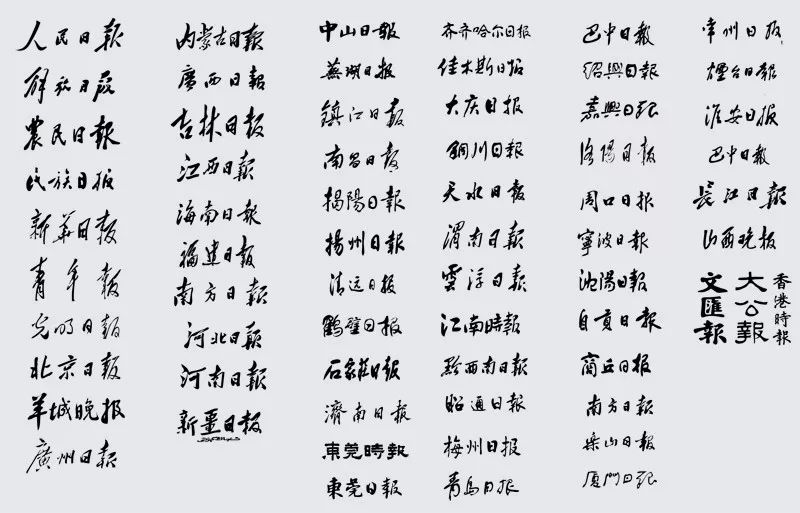 人民日報
解放日报
農民日報
民族日报
新华日报
青年報
光明日報
北京日報
羊城晚报
廣州日報
内蒙古日報
廣西日報
吉林日报
江西日報
海南日報
福建日報
南方日報
河北日報
河南日報
新疆日报
中山日報
蕪湖日报
镇江日報
南昌日報
揭陽日報
揚州日報
清远日报
鶴壁日报
石家莊日報
濟南日報
東莞時報
東莞日報
齐齐哈尔日报
佳木斯日报
大庆日报
銅川日報
天水日報
渭南日報
雲浮日報
江南時報
黔西南日報
昭通日報
梅州日报
青島日报
巴中日報
紹興日報
嘉興日報
洛陽日报
周口日报
寧波日報
沈陽日報
自貢日報
商丘日报
南方日報
乐山日報
厦門日報
常州日报
煙台日報
淮安日报
巴中日報
長江日報
山西晚报
文匯報
大公報
香港時報